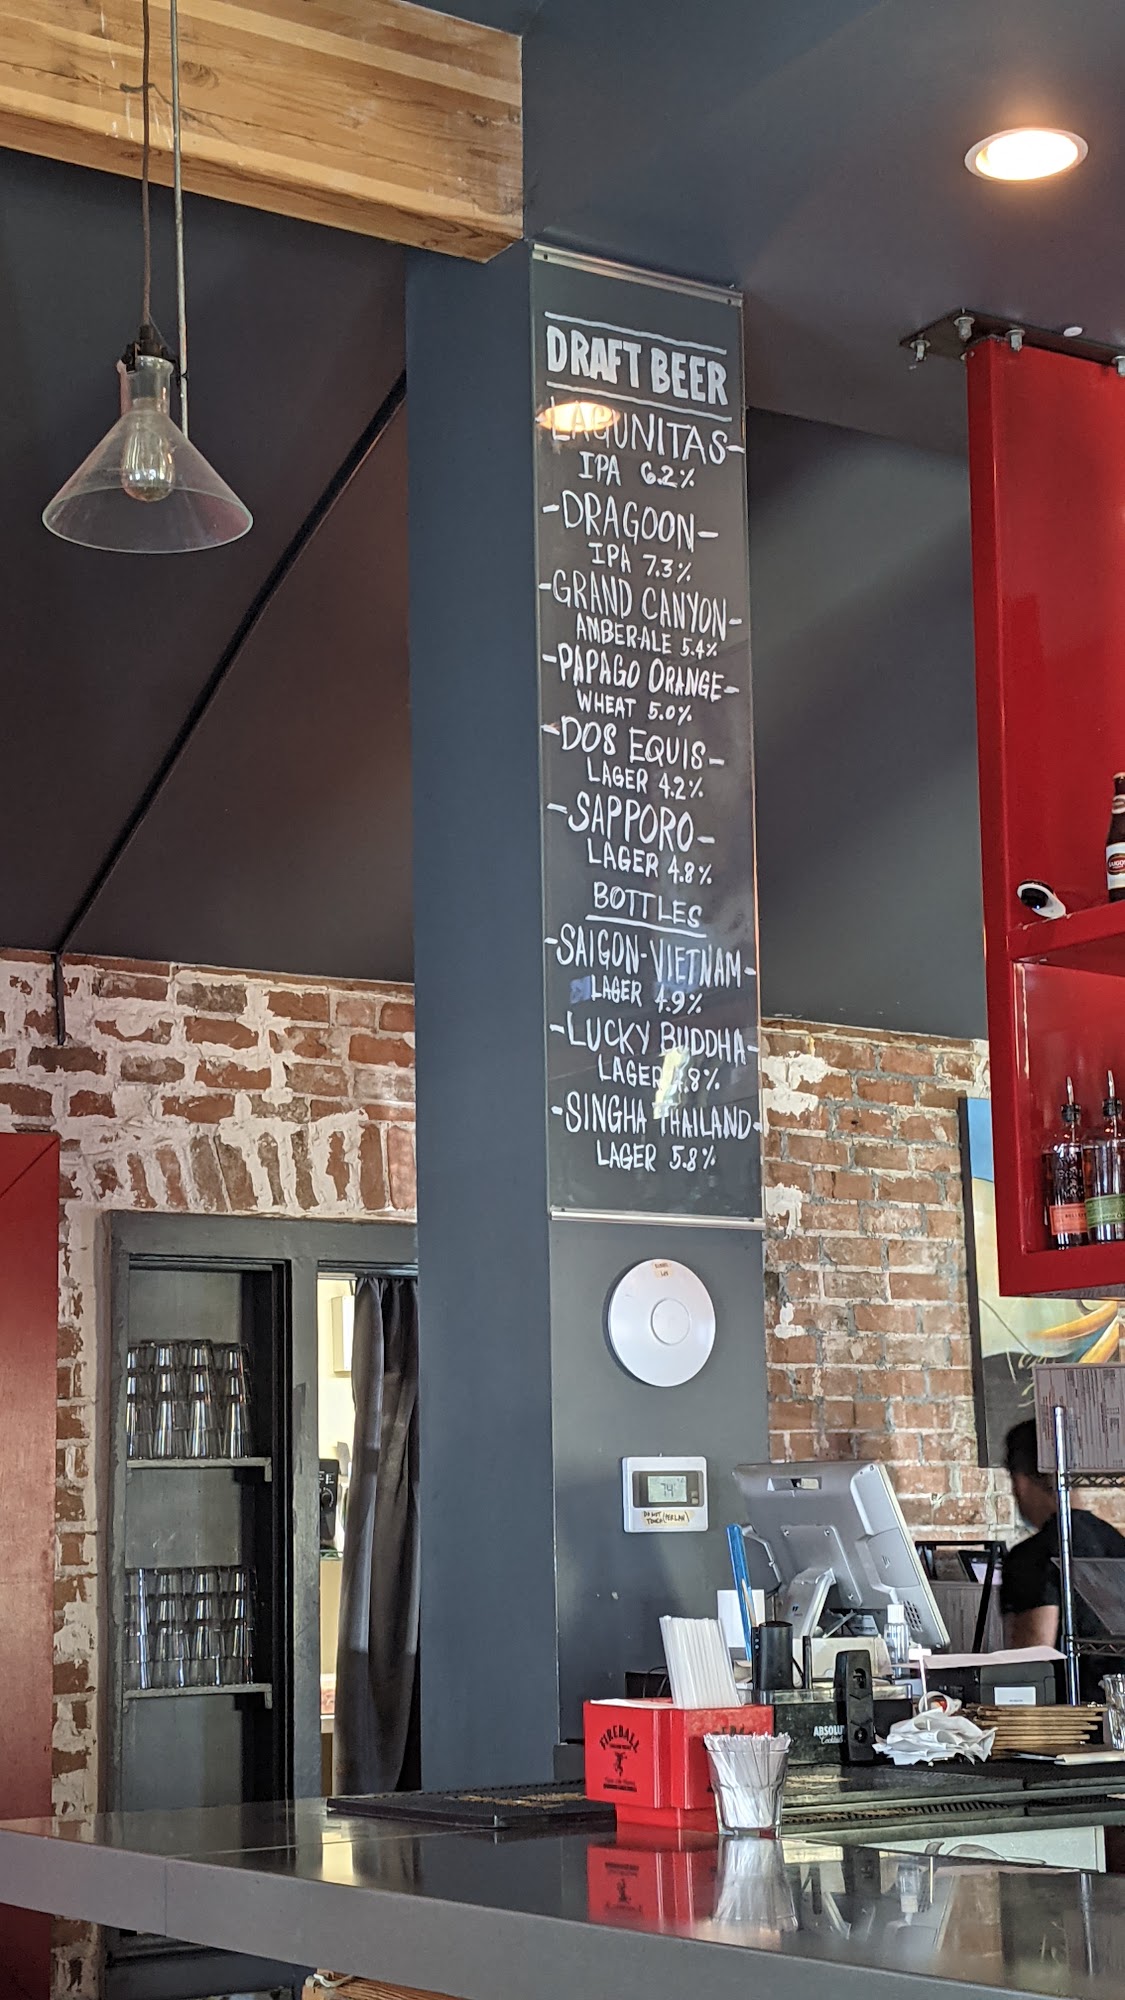 DRAFT BEER
LAGUNITAS-
IPA 6.2%
-DRAGOON-
IPA 7.3%
-GRAND CANYON-
AMBER-ALE 5.4%
-PAPAGO ORANGE-
WHEAT 5.0%
-DOS EQUIS-
LAGER 4.2%
-SAPPORO-
LAGER 4.8%
BOTTLES
-SAIGON-VIETNAM-
LAGER 4.9%
-LUCKY BUDDHA-
LAGER 4.8%
-SINGHA THAILAND-
LAGER 5.8%
74°
DO NOT
TOUCH
FIREBALL
ABSOLU